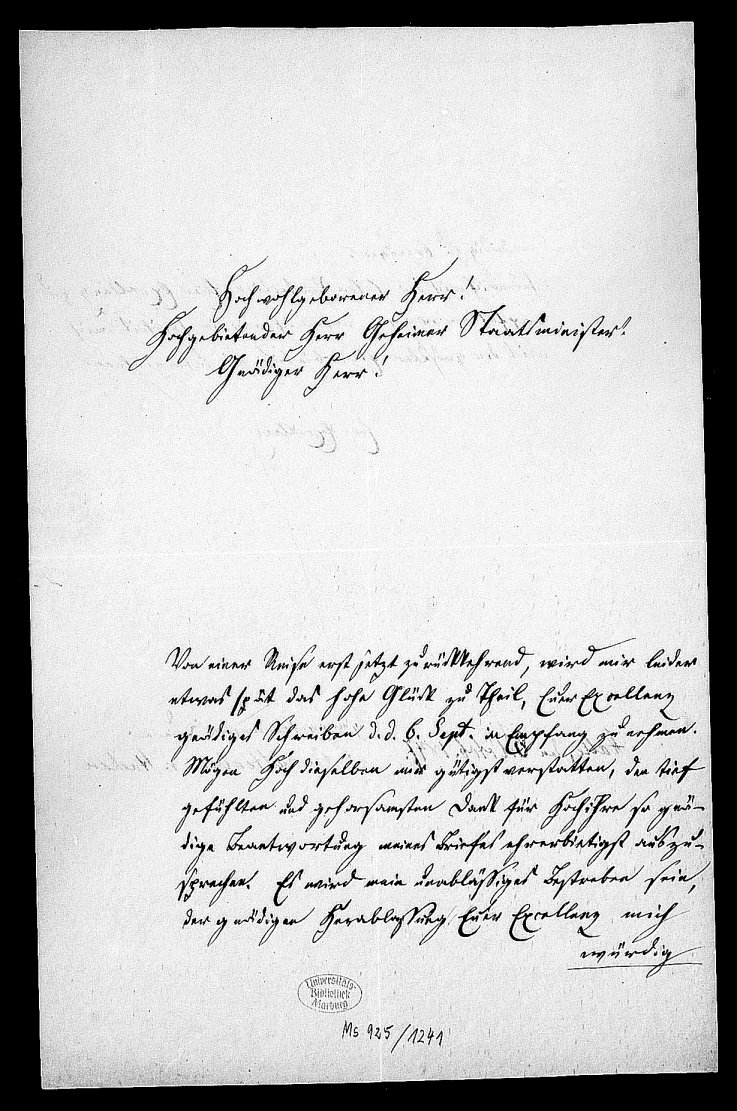 Hochwohlgeborener Herr!
Hochgebietender Herr Geheimer Staatsminister!
Gnädiger Herr!
Von einer Reise erst jetzt zurückkehrend, wird mir leider
etwas spät das hohe Glück zu Theil, Euer Excellenz
gnädiges Schreiben d. d. 6. Sept. in Empfang zu nehmen.
Mögen Hochdieselben mir gütigst verstatten, den tief
gefühlten und gehorsamsten Dank für Hochihre so gnä-
dige Beantwortung meines Briefes ehrerbietigst auszu-
sprechen. Es wird mein unablässiges Bestreben sein,
der gnädigen Herablassung Euer Excellenz mich
würdig
Universitäts-
Bibliothek
Marburg
Ms 925/1241